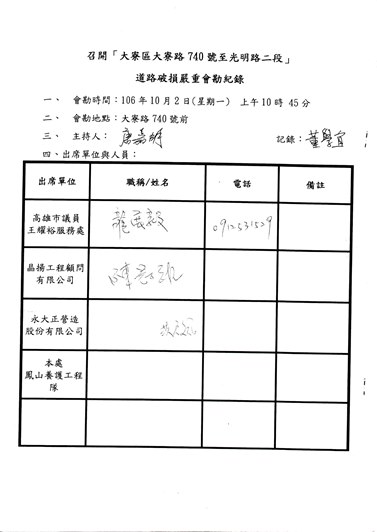 召開「大寮區大寮路740號至光明路二段」
道路破損嚴重會勘紀錄
一、 會勘時間：106年10月2日(星期一) 上午10時45分
二、 會勘地點：大寮路740號前
三、 主持人： 紀錄：
四、出席單位與人員：
出席單位 職稱/姓名 電話 備註
高雄市議員
王耀裕服務處
晶揚工程顧問
有限公司
永大正營造
股份有限公司
本處
鳳山養護工程
隊